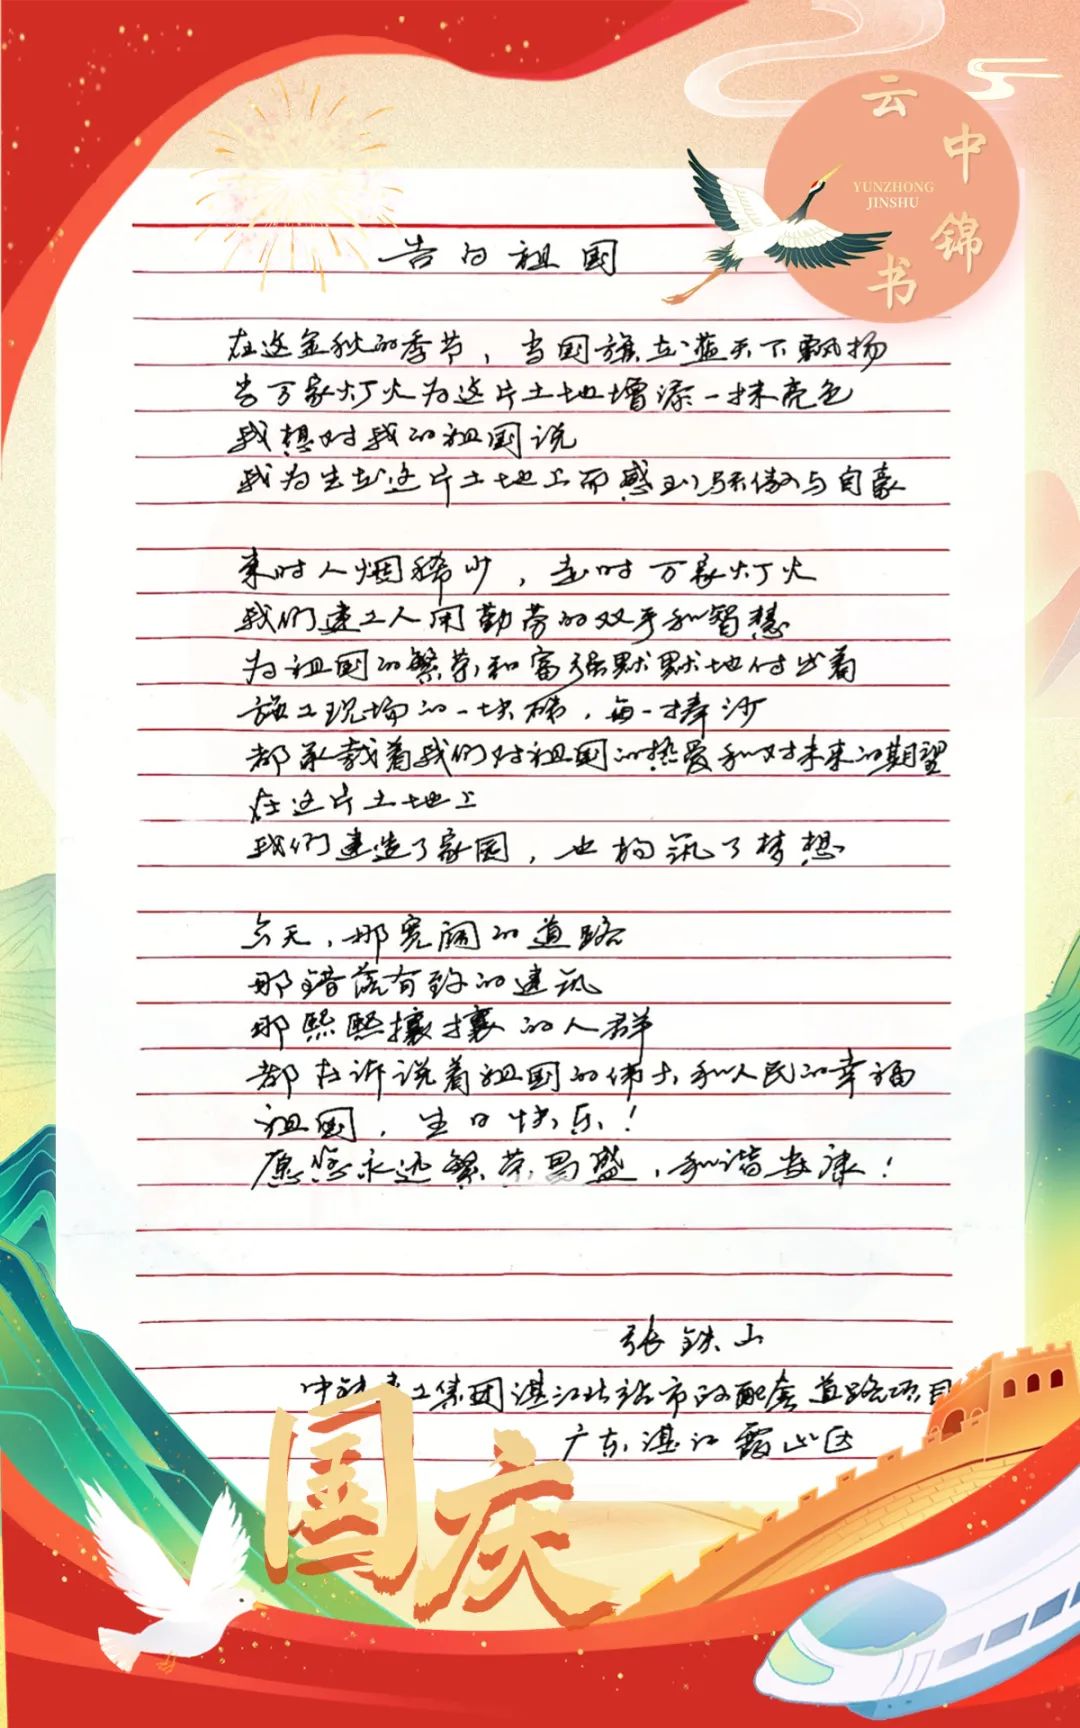 云中锦书
YUNZHONG
JINSHU
告白祖国
在这金秋的季节，当国旗在蓝天下飘扬
当万家灯火为这片土地增添一抹亮色
我想对我的祖国说
我为生在这片土地上而感到骄傲与自豪
来时人烟稀少，走时万家灯火
我们建工人用勤劳的双手和智慧
为祖国的繁荣和富强默默地付出着
施工现场的一块砖，每一捧沙
都承载着我们对祖国的热爱和对未来的期望
在这片土地上
我们建造了家园，也构筑了梦想
今天，那宽阔的道路
那错落有致的建筑
那熙熙攘攘的人群
都在诉说着祖国的伟大和人民的幸福
祖国，生日快乐！
愿您永远繁荣昌盛，和谐安康！
张铁山
中铁建工集团湛江北站市政配套道路项目
广东湛江霞山区
国庆